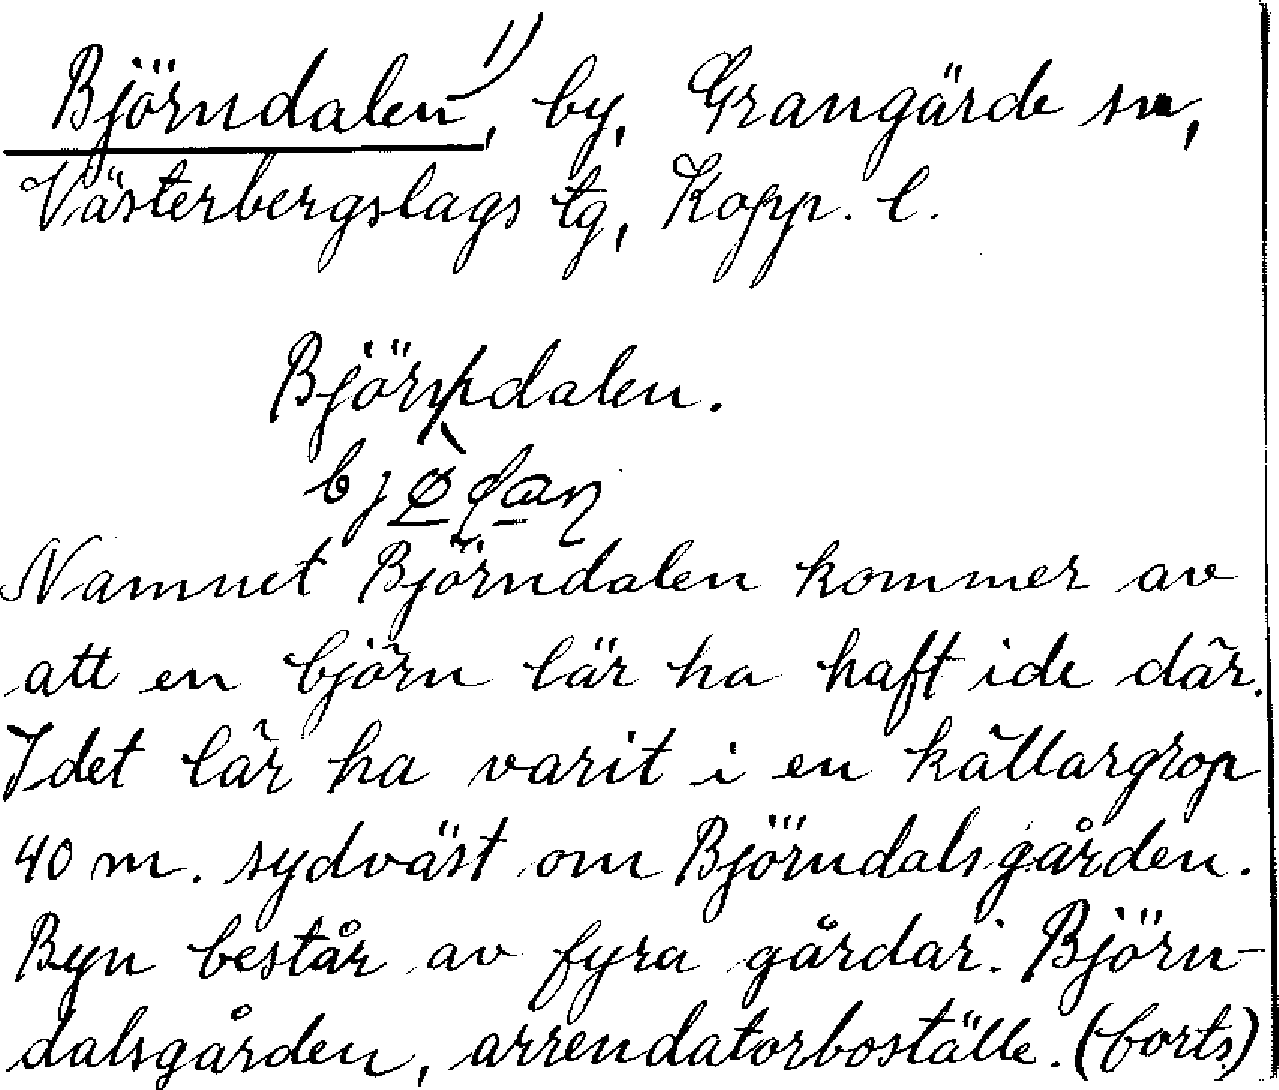 Björndalen¹⁾, by, Grangärde sn,
Västerbergslags tg, Kopp. l.
Björndalen.
Namnet Björndalen kommer av
att en björn lär ha haft ide där.
Idet lär ha varit i en källargrop
40 m. sydväst om Björndalsgården.
Byn består av fyra gårdar: Björn-
dalsgården, arrendatorboställe. (forts.)